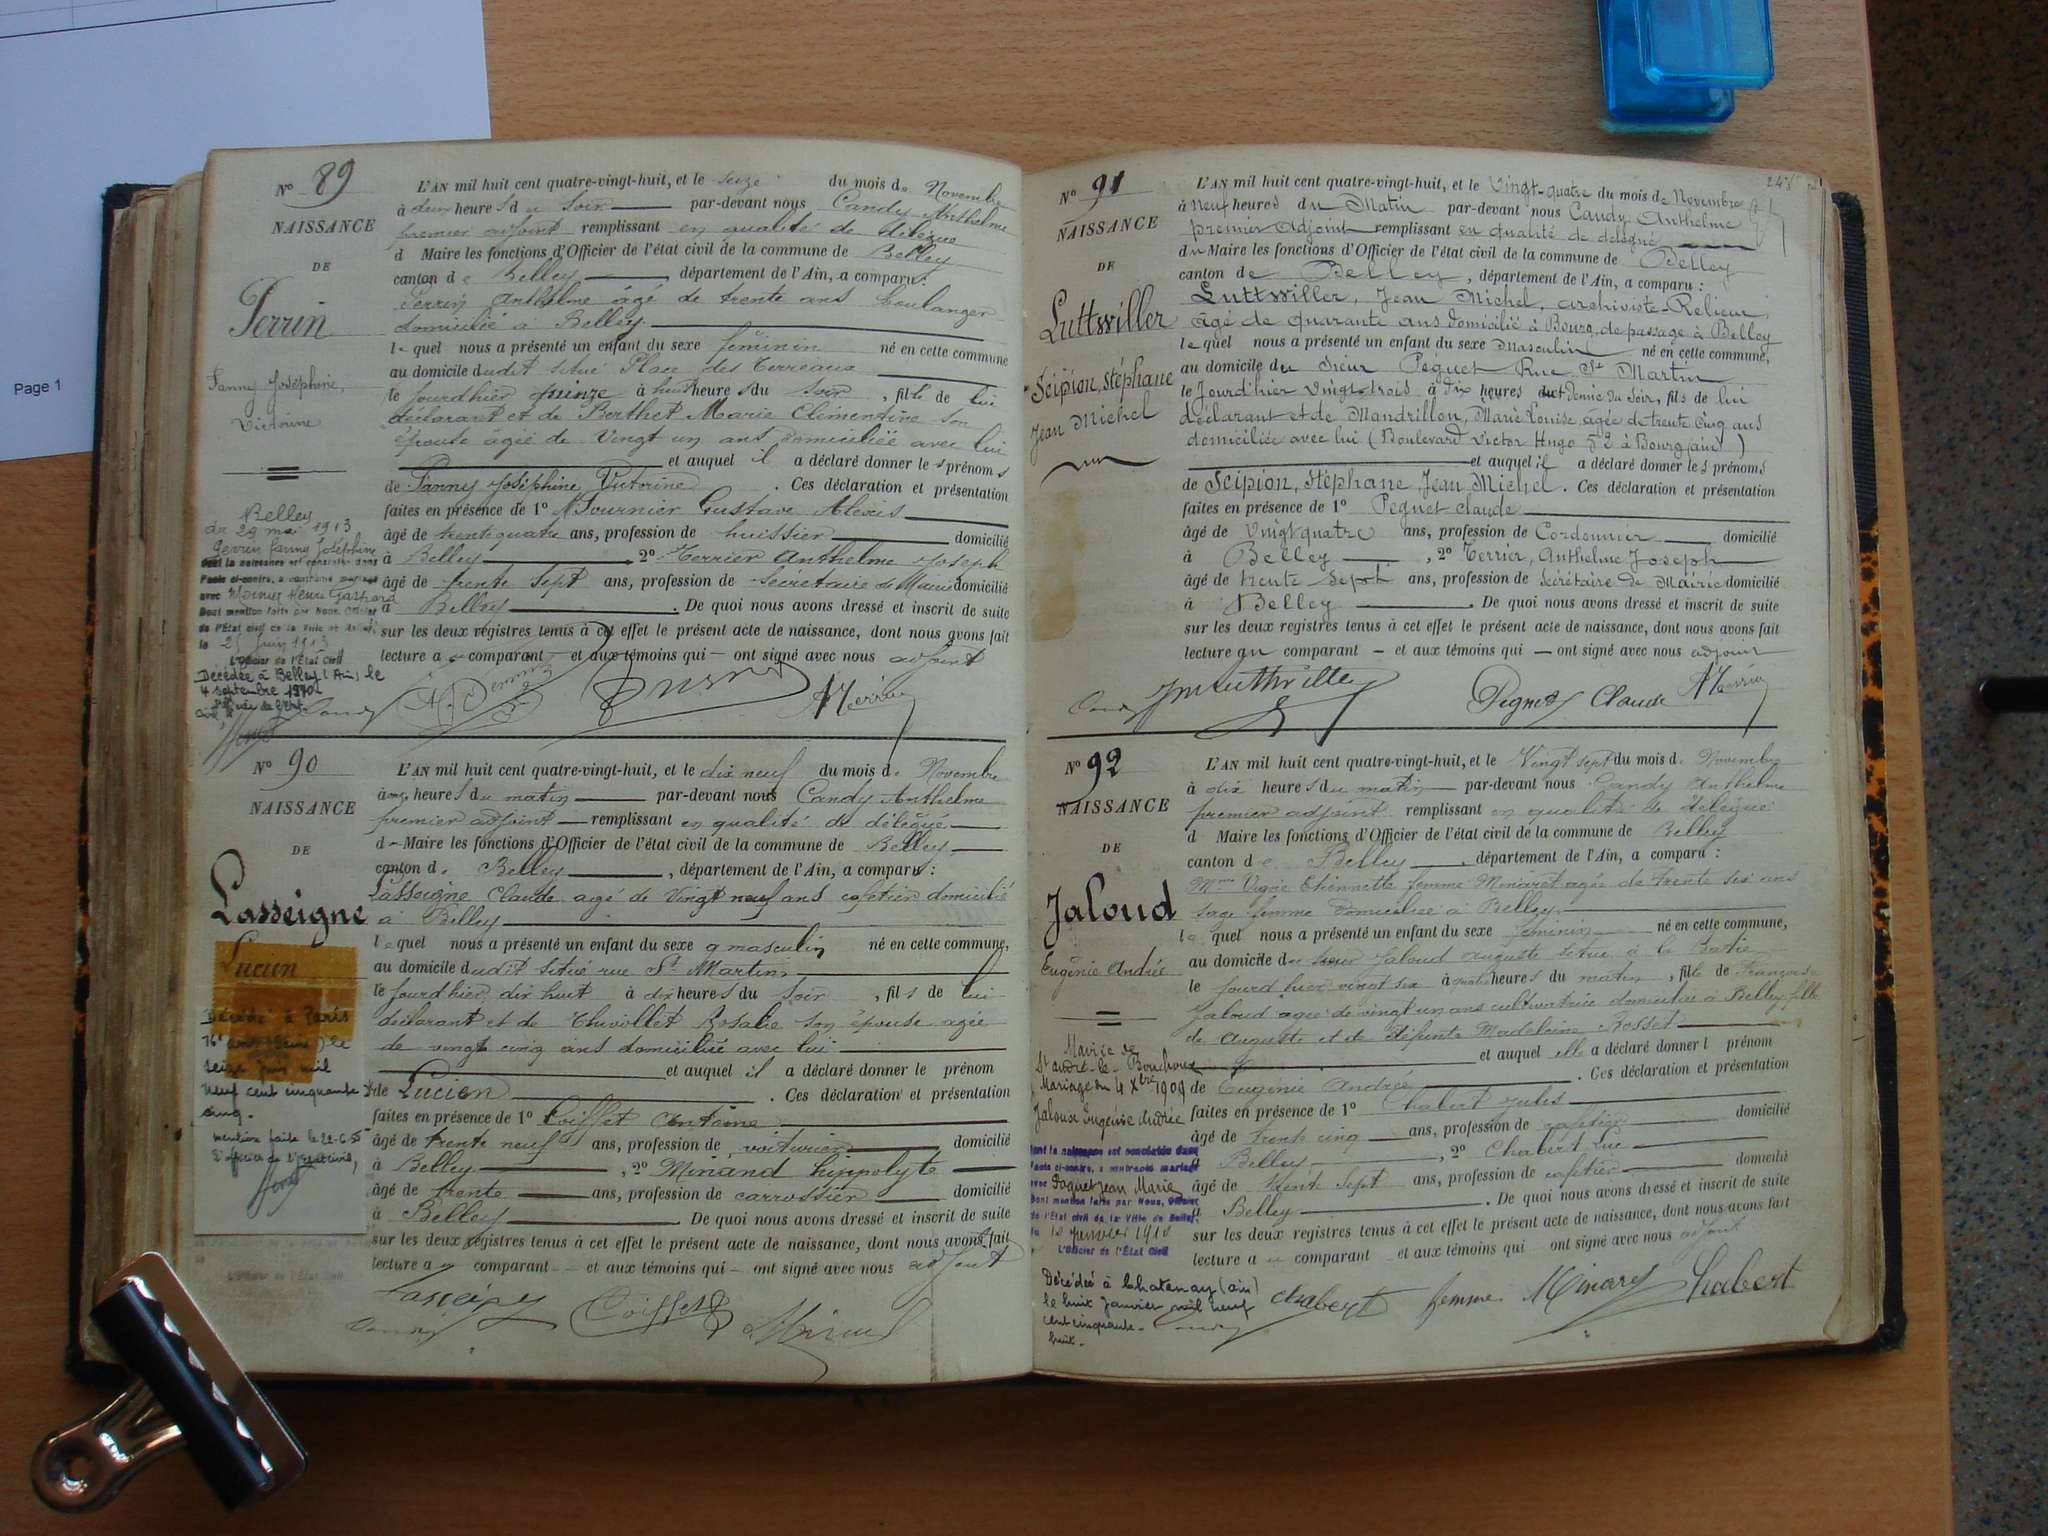 Page 1
N° 89
NAISSANCE
DE
Perrin
Fanny Joséphine,
Victorine
Belley
du 29 mai 1913
Perrin Fanny Joséphine
dont la naissance est constatée dans
l'acte ci-contre, a contracté mariage
avec Monier Henri Gaspard
Dont mention faite par Nous, Officier
de l'État civil de la Ville de Belley,
le 2 juin 1913
L'Officier de l'État Civil
Décédée à Belley (Ain) le
4 septembre 1970
L'AN mil huit cent quatre-vingt-huit, et le seize du mois de Novembre
à deux heures du soir par-devant nous Candy Anthelme
premier adjoint remplissant en qualité de délégué
d Maire les fonctions d'Officier de l'état civil de la commune de Belley
canton de Belley, département de l'Ain, a comparu :
Perrin Anthelme âgé de trente ans boulanger
domicilié à Belley
lequel nous a présenté un enfant du sexe féminin né en cette commune
au domicile dudit situé Place des Terreaux
le jourd'hier quinze à huit heures du soir, fille de lui
déclarant et de Berthet Marie Clémentine son
épouse âgée de Vingt un ans domiciliée avec lui
et auquel il a déclaré donner les prénoms
de Fanny Joséphine Victorine. Ces déclaration et présentation
faites en présence de 1° Mr Fournier Gustave Alexis
âgé de trente quatre ans, profession de huissier domicilié
à Belley, 2° Terrier Anthelme Joseph
âgé de trente sept ans, profession de Secrétaire de Mairie domicilié
à Belley. De quoi nous avons dressé et inscrit de suite
sur les deux registres tenus à cet effet le présent acte de naissance, dont nous avons fait
lecture au comparant et aux témoins qui ont signé avec nous adjoint
Candy A. Perrin ATerrier
N° 90
NAISSANCE
DE
Lasseigne
Lucien
Décédé à Paris
16e arr. (Seine) le
seize juin mil
neuf cent cinquante
cinq.
mention faite le 22-6-55
L'officier de l'état civil,
L'Officier de l'État Civil
L'AN mil huit cent quatre-vingt-huit, et le dix neuf du mois de Novembre
à onze heures du matin par-devant nous Candy Anthelme
premier adjoint remplissant en qualité de délégué
du Maire les fonctions d'Officier de l'état civil de la commune de Belley
canton de Belley, département de l'Ain, a comparu :
Lasseigne Claude agé de Vingt neuf ans cafetier domicilié
à Belley
lequel nous a présenté un enfant du sexe masculin né en cette commune,
au domicile dudit situé rue St Martin
le jourdhier dix huit à dix heures du soir, fils de lui
déclarant et de Thivollet Rosalie son épouse agée
de vingt cinq ans domiciliée avec lui
et auquel il a déclaré donner le prénom
de Lucien. Ces déclaration et présentation
faites en présence de 1° Coiffet Antoine
âgé de trente neuf ans, profession de voiturier domicilié
à Belley, 2° Minand hippolyte
âgé de trente ans, profession de carrossier domicilié
à Belley. De quoi nous avons dressé et inscrit de suite
sur les deux registres tenus à cet effet le présent acte de naissance, dont nous avons fait
lecture au comparant et aux témoins qui ont signé avec nous adjoint
Candy Coiffet
248
N° 91
NAISSANCE
DE
Luttwiller
Scipion, Stéphane
Jean Michel
L'AN mil huit cent quatre-vingt-huit, et le Vingt-quatre du mois de Novembre
à neuf heures du Matin par-devant nous Candy Anthelme
premier Adjoint remplissant en qualité de délégué
du Maire les fonctions d'Officier de l'état civil de la commune de Belley
canton de Belley, département de l'Ain, a comparu :
Luttwiller, Jean Michel, archiviste-Relieur,
âgé de quarante ans domicilié à Bourg, de passage à Belley
lequel nous a présenté un enfant du sexe Masculin né en cette commune,
au domicile du Sieur Péguet Rue St Martin
le Jourd'hier Vingt-trois à Dix heures et Demie du Soir, fils de lui
déclarant et de Mandrillon, Marie Louise, agée de trente Cinq ans
domiciliée avec lui (Boulevard Victor Hugo 52 à Bourg (Ain))
et auquel il a déclaré donner les prénoms
de Scipion, Stéphane, Jean Michel. Ces déclaration et présentation
faites en présence de 1° Péguet claude
âgé de Vingt quatre ans, profession de Cordonnier domicilié
à Belley, 2° Terrier, Anthelme Joseph
âgé de trente Sept ans, profession de Secrétaire de Mairie domicilié
à Belley. De quoi nous avons dressé et inscrit de suite
sur les deux registres tenus à cet effet le présent acte de naissance, dont nous avons fait
lecture au comparant et aux témoins qui ont signé avec nous adjoint
Candy Péguet Claude ATerrier
N° 92
NAISSANCE
DE
Jaloud
Eugénie Andrée
Mairie de
St André-le-Bouchoux
Mariage du 4 Xbre 1909
Jaloud Eugénie Andrée
dont la naissance est constatée dans
l'acte ci-contre, a contracté mariage
avec Paquet Jean Marie
Dont mention faite par Nous, Officier
de l'État civil de la Ville de Belley,
le 10 Janvier 1910
L'Officier de l'État Civil
Décédée à Chatenay (Ain)
le huit Janvier mil neuf
cent cinquante-
huit.
L'AN mil huit cent quatre-vingt-huit, et le Vingt sept du mois de Novembre
à dix heures du matin par-devant nous Candy Anthelme
premier adjoint remplissant en qualité de délégué
d Maire les fonctions d'Officier de l'état civil de la commune de Belley
canton de Belley, département de l'Ain, a comparu :
Mme Vigne Etiennette femme Minaret agée de trente six ans
sage femme domiciliée à Belley
lequel nous a présenté un enfant du sexe féminin né en cette commune,
au domicile du sieur Jaloud auguste situé à la
le jourd'hier vingt six à quatre heures du matin, fille de Françoise
Jaloud agée de vingt un ans cultivatrice domiciliée à Belley fille
de Auguste et de défunte Madeleine Rosset
et auquel elle a déclaré donner l prénom
de Eugénie Andrée. Ces déclaration et présentation
faites en présence de 1° Chabert Jules
âgé de trente cinq ans, profession de cafetier domicilié
à Belley, 2° Chabert Luc
âgé de trente sept ans, profession de cafetier domicilié
à Belley. De quoi nous avons dressé et inscrit de suite
sur les deux registres tenus à cet effet le présent acte de naissance, dont nous avons fait
lecture au comparant et aux témoins qui ont signé avec nous adjoint
Candy Chabert femme Minaret Chabert